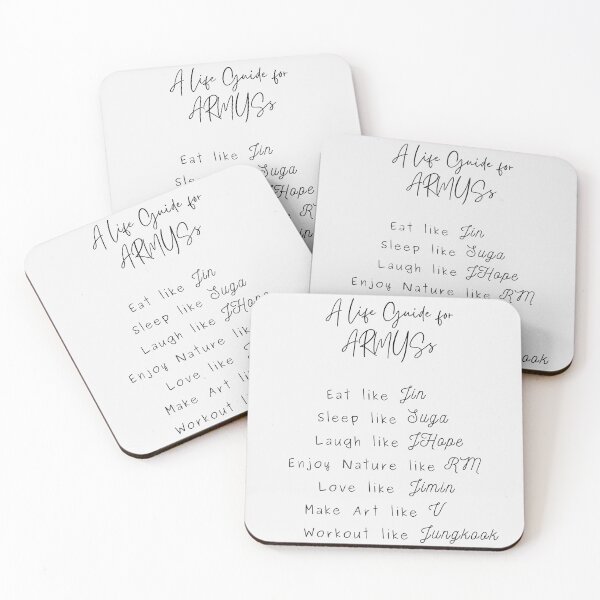 A Life Guide for
ARMYSs
Eat like Jin
Sle Suga
JHope
RM
A Life Guide for
ARMYSs
Eat like Jin
Sleep like Suga
Laugh like JHope
Enjoy Nature like RM
ook
A Life Guide for
ARMYSs
Eat like Jin
Sleep like Suga
Laugh like JHope
Enjoy Nature like
Love like
Make Art like
Workout l
A Life Guide for
ARMYSs
Eat like Jin
Sleep like Suga
Laugh like JHope
Enjoy Nature like RM
Love like Jimin
Make Art like V
Workout like Jungkook